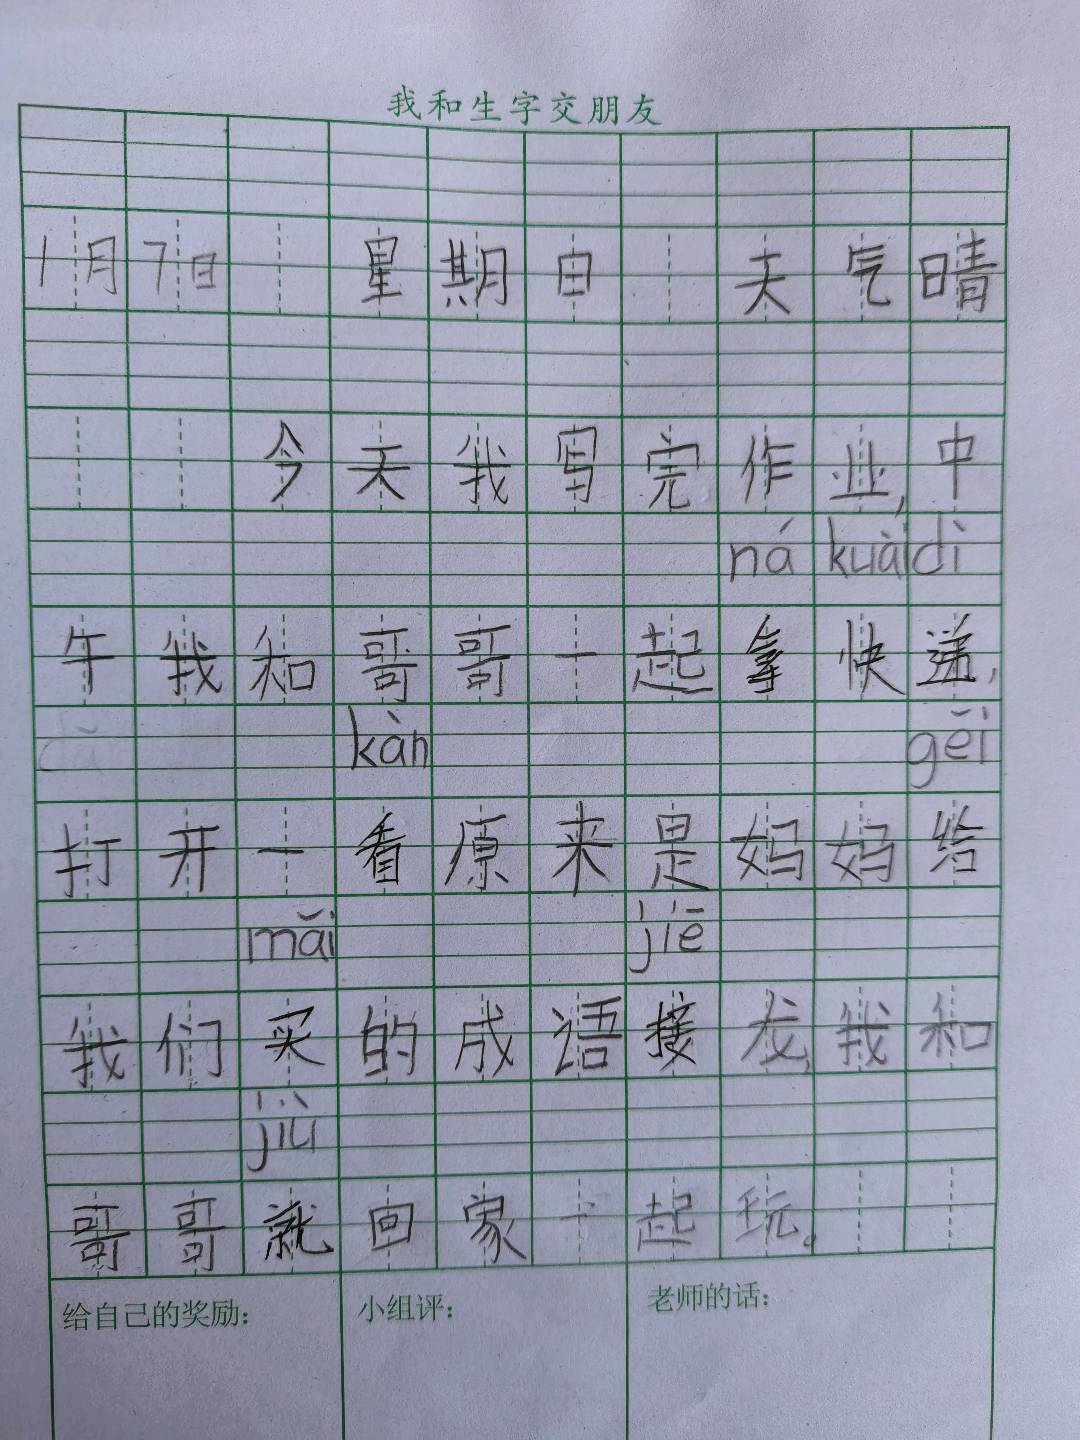 我和生字交朋友
1月7日 星期日 天气晴
今天我写完作业,中
ná kuài dì
午我和哥哥一起拿快递,
dǎ kàn gěi
打开一看原来是妈妈给
mǎi jiē
我们买的成语接龙,我和
jiù
哥哥就回家一起玩。
给自己的奖励: 小组评: 老师的话: